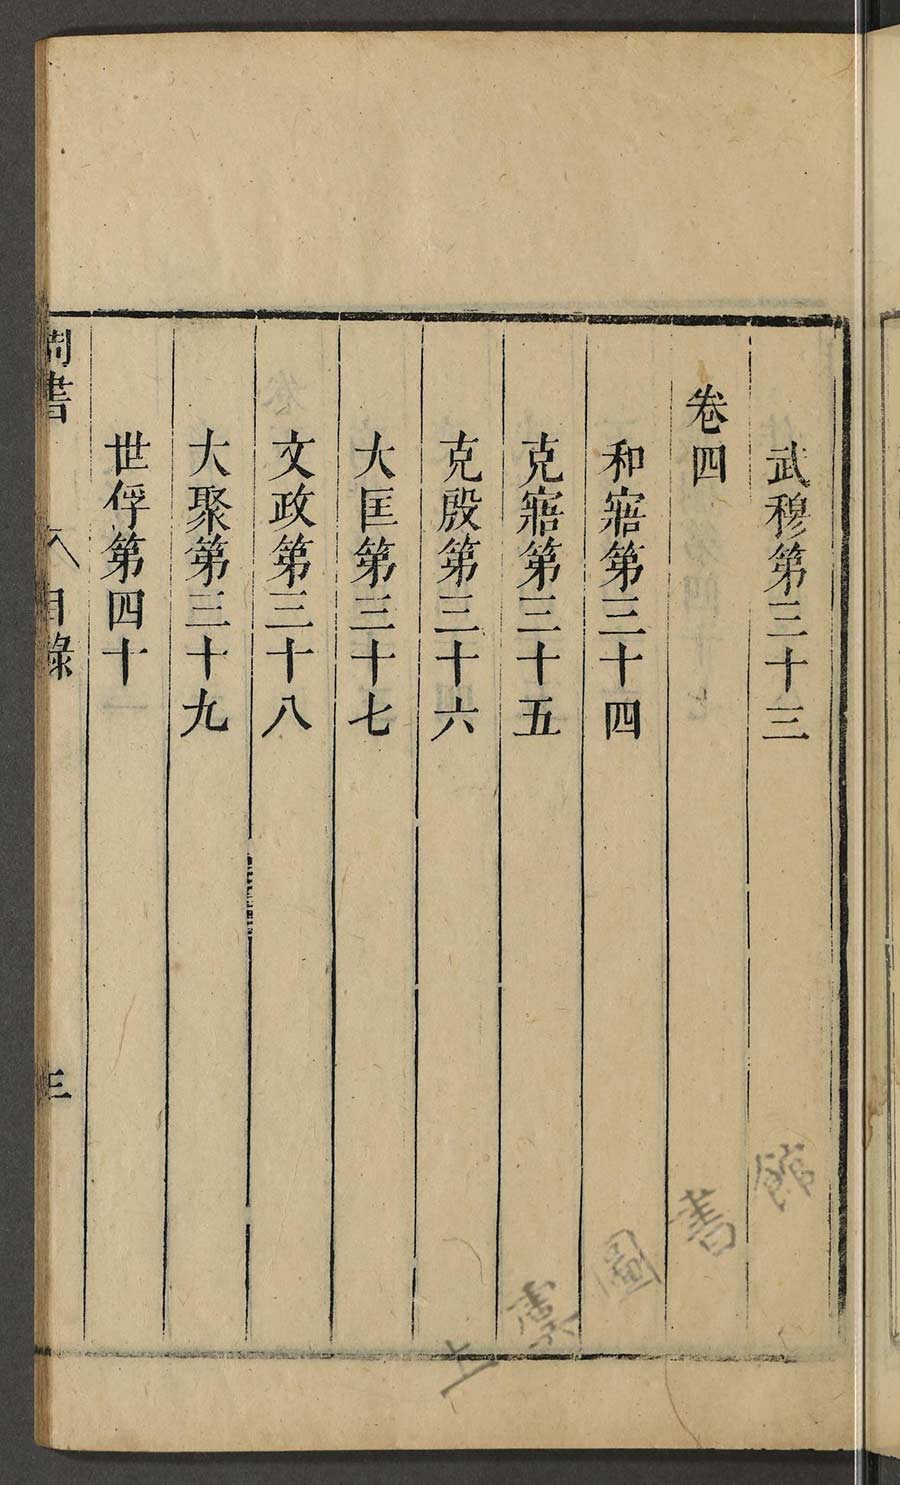 武穆第三十三
卷四
和寤第三十四
克寤第三十五
克殷第三十六
大匡第三十七
文政第三十八
大聚第三十九
世俘第四十
周書
目錄
三
上虞圖書館